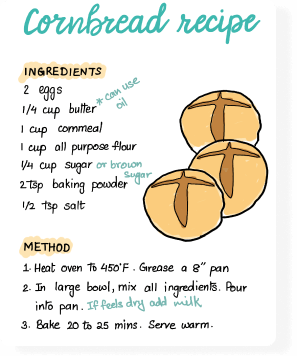 Cornbread recipe
INGREDIENTS
2 eggs
1/4 cup butter *can use oil
1 cup cornmeal
1 cup all purpose flour
1/4 cup sugar or brown sugar
2 tsp baking powder
1/2 tsp salt
METHOD
1. Heat oven to 450°F. Grease a 8" pan
2. In large bowl, mix all ingredients. Pour
into pan. If feels dry add milk
3. Bake 20 to 25 mins. Serve warm.